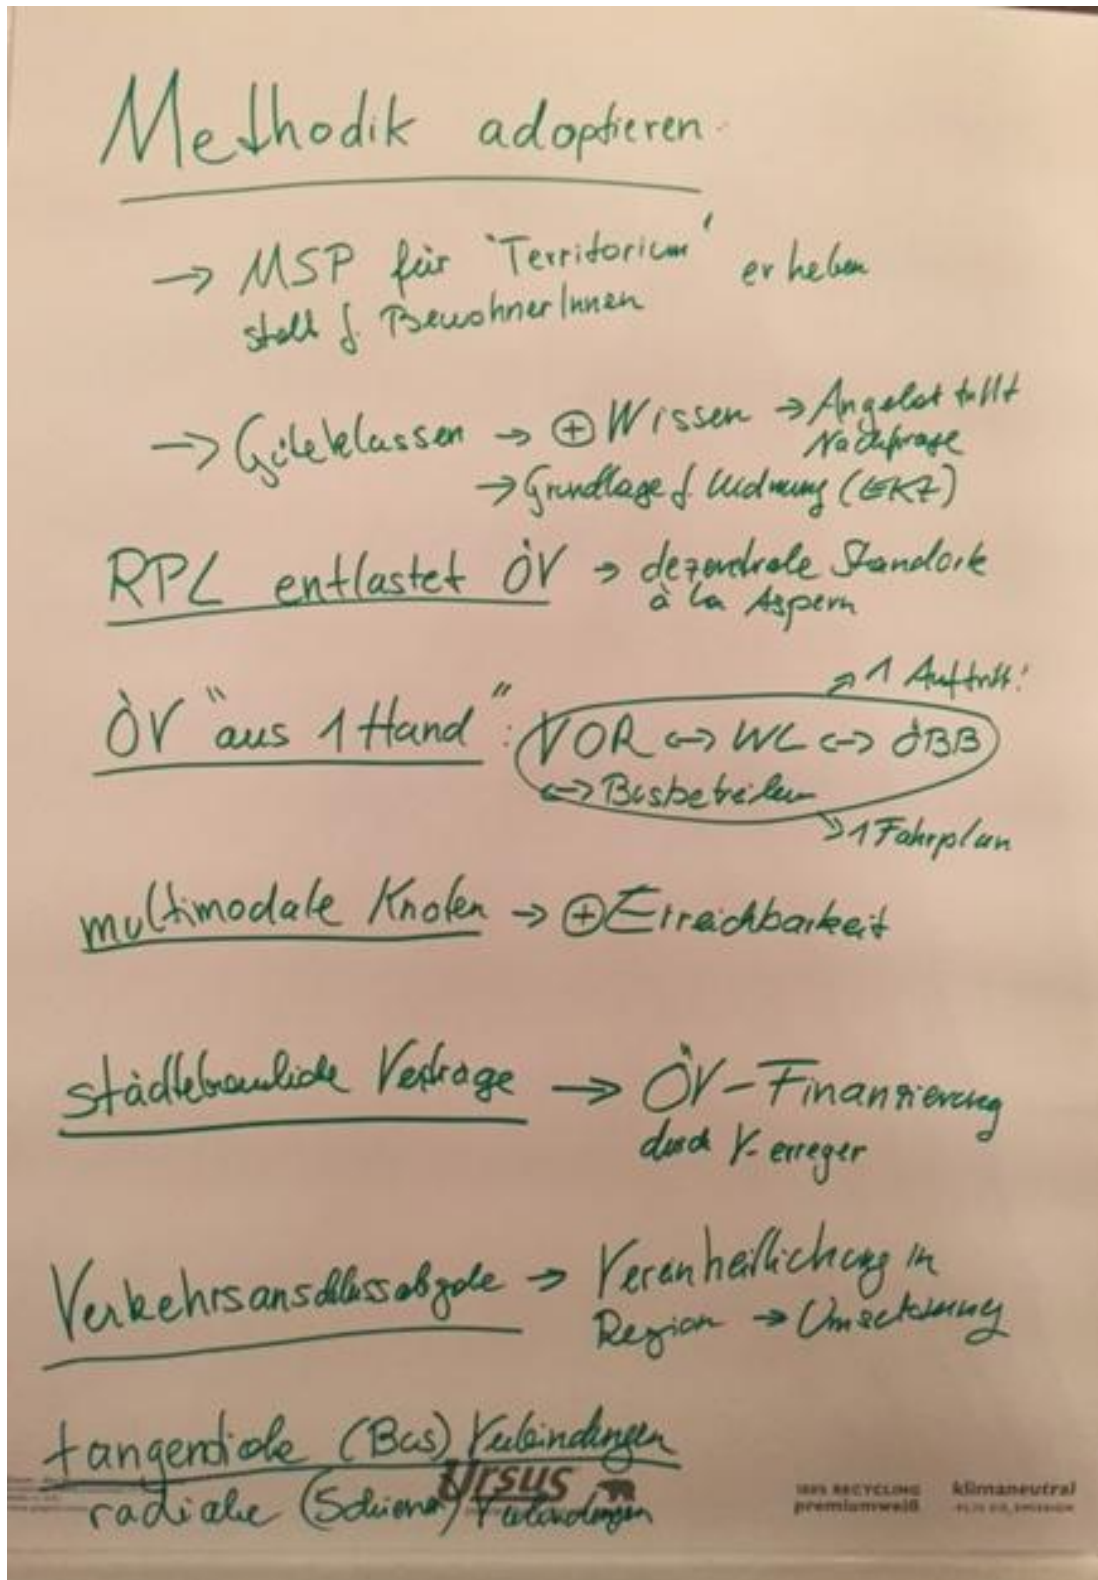 Methodik adoptieren
→ MSP für "Territorium" erheben
statt f. BewohnerInnen
→ Güteklassen → ⊕ Wissen → Angebot trifft
Nachfrage
→ Grundlage f. Widmung (EKZ)
RPL entlastet ÖV → dezentrale Standorte
à la Aspern
→ 1 Auftritt!
ÖV "aus 1 Hand": VOR ↔ WL ↔ ÖBB
↔ Busbetreiber
→ 1 Fahrplan
multimodale Knoten → ⊕ Erreichbarkeit
städtebauliche Verträge → ÖV-Finanzierung
durch V-erreger
Verkehrsanschlussabgabe → Vereinheitlichung in
Region → Umsetzung
tangentiale (Bus) Verbindungen
radiale (Schiene) Verbindungen
Ursus
100% RECYCLING
premiumweiß
klimaneutral